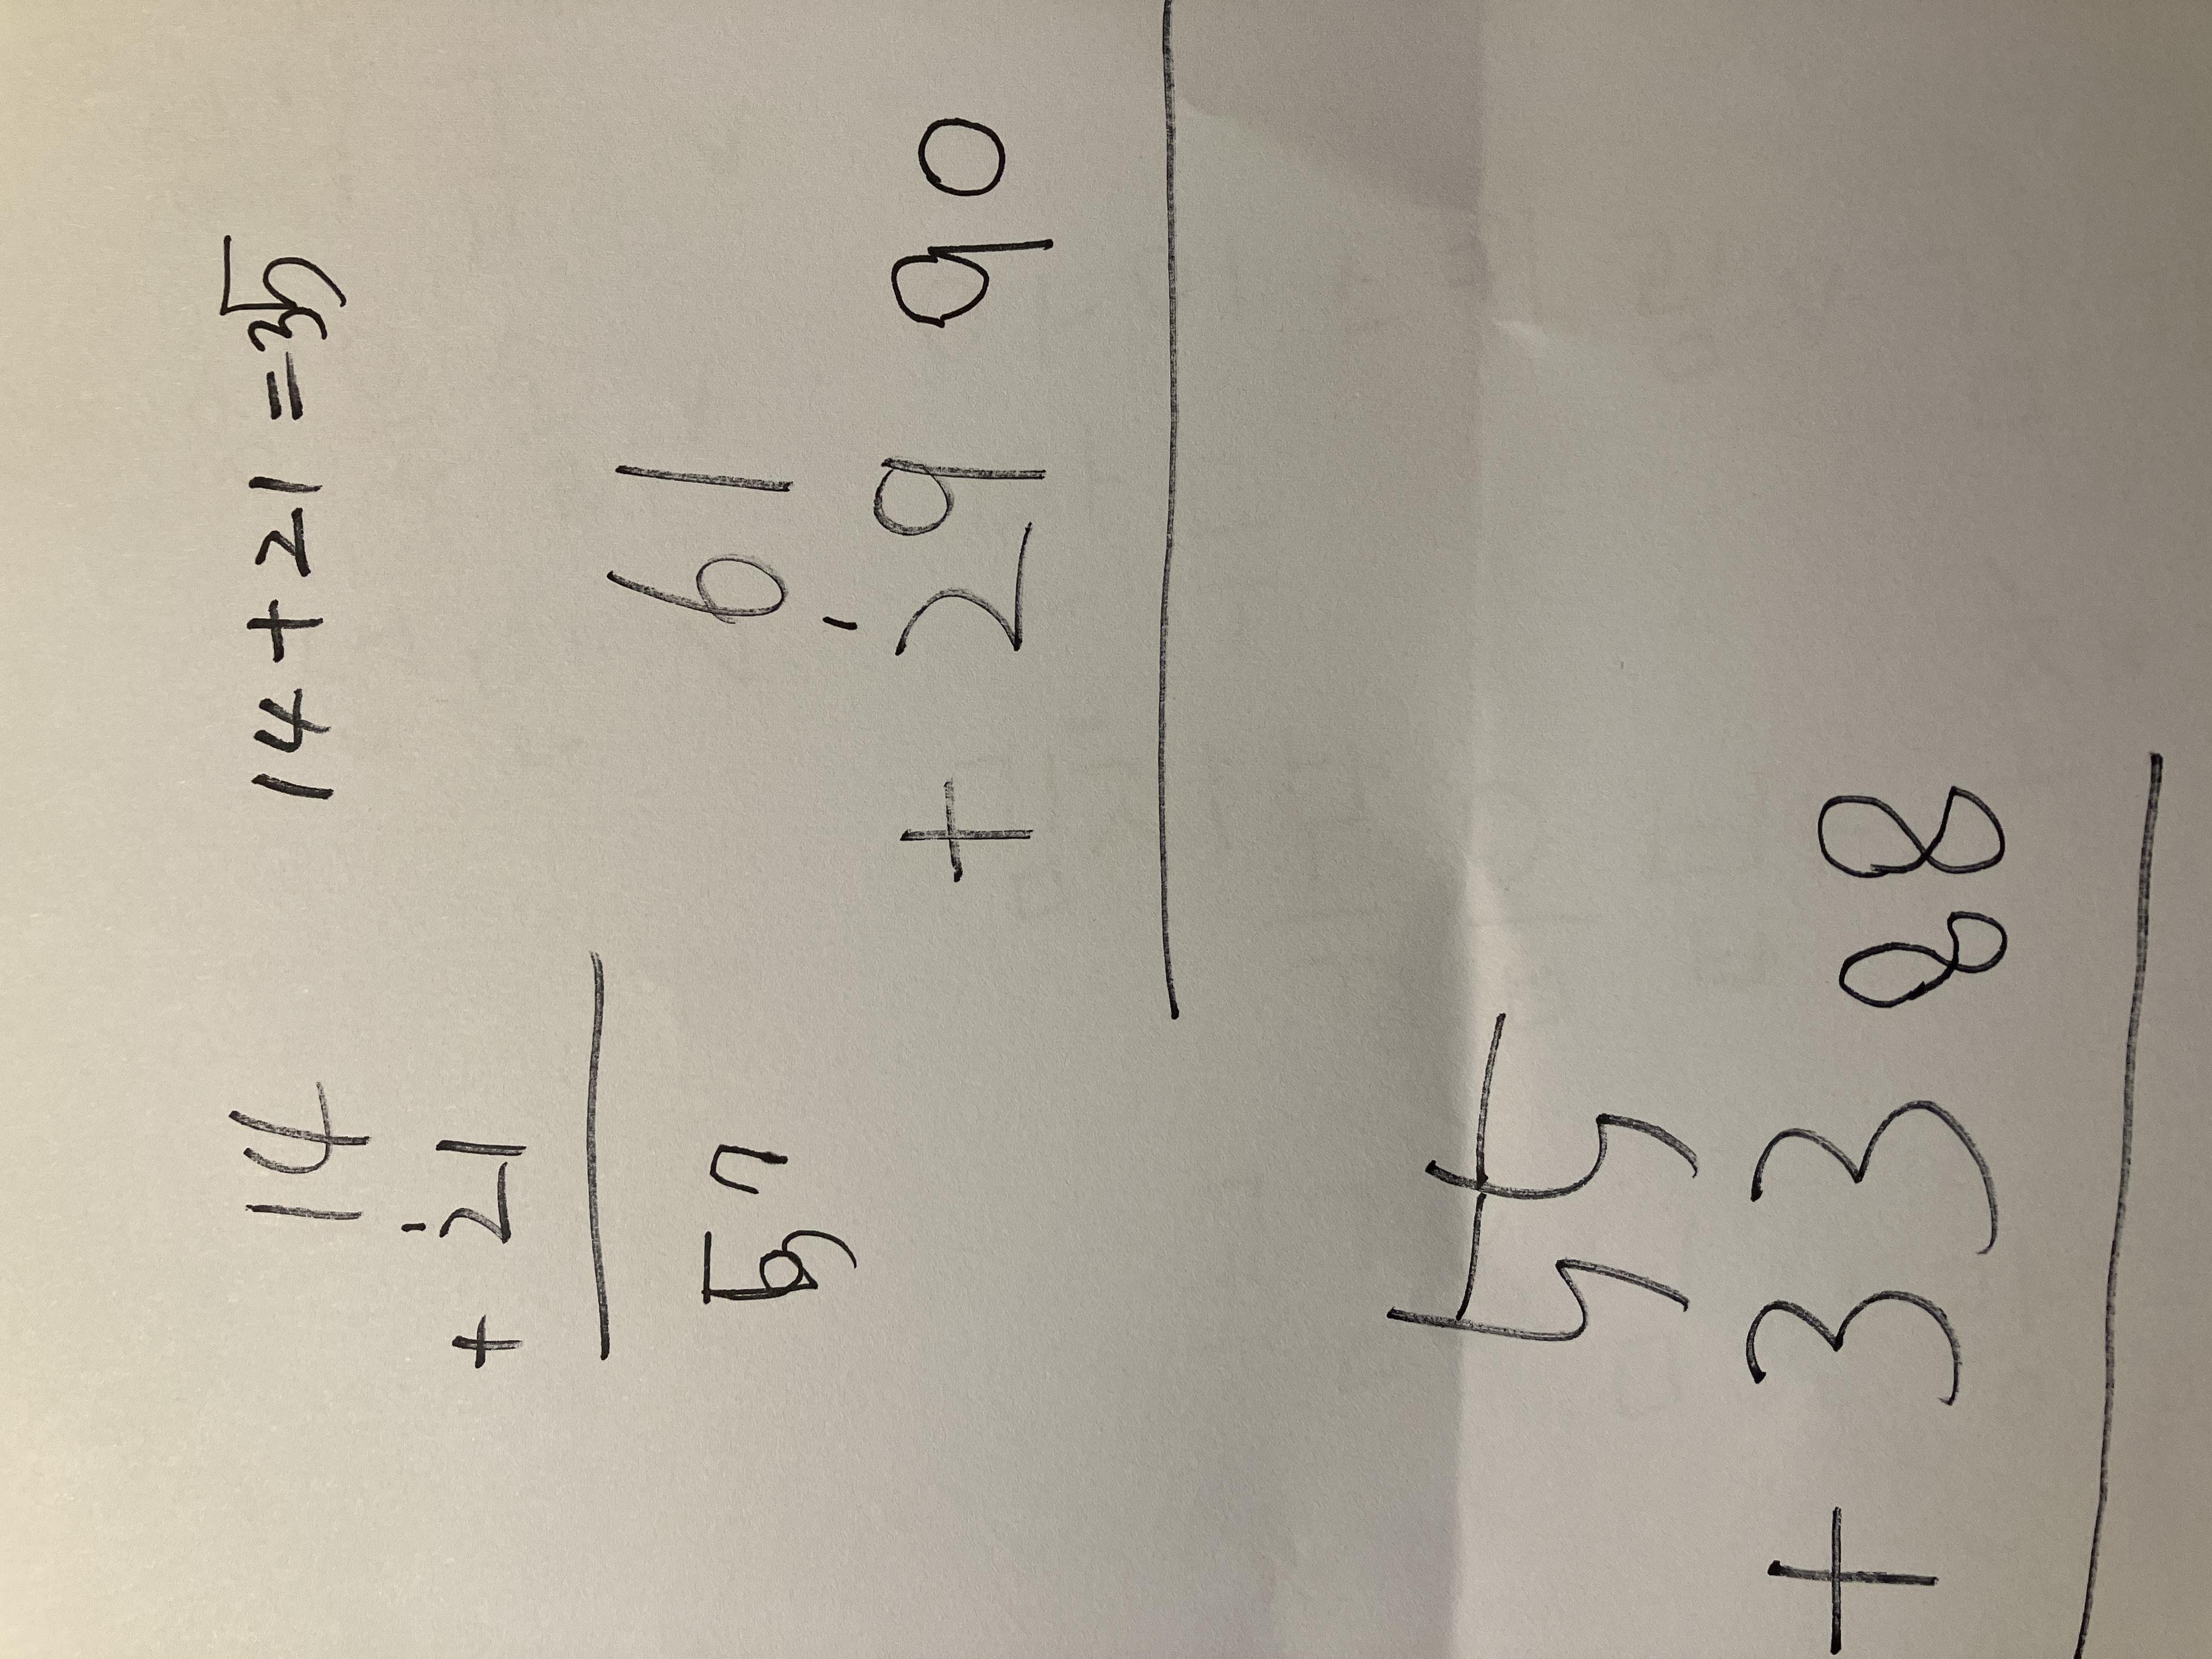 14 14+21=35
+ 21
57
61
+ 29 90
55
+ 33 88